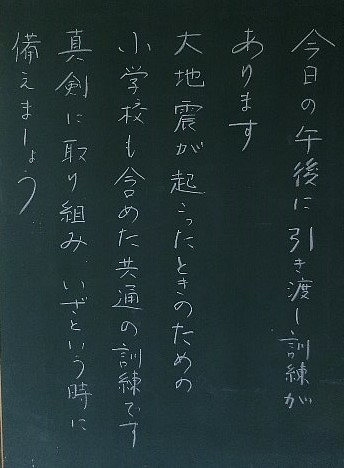 今日の午後に引き渡し訓練が
あります
大地震が起こったときのための
小学校も含めた共通の訓練です
真剣に取り組み いざという時に
備えましょう